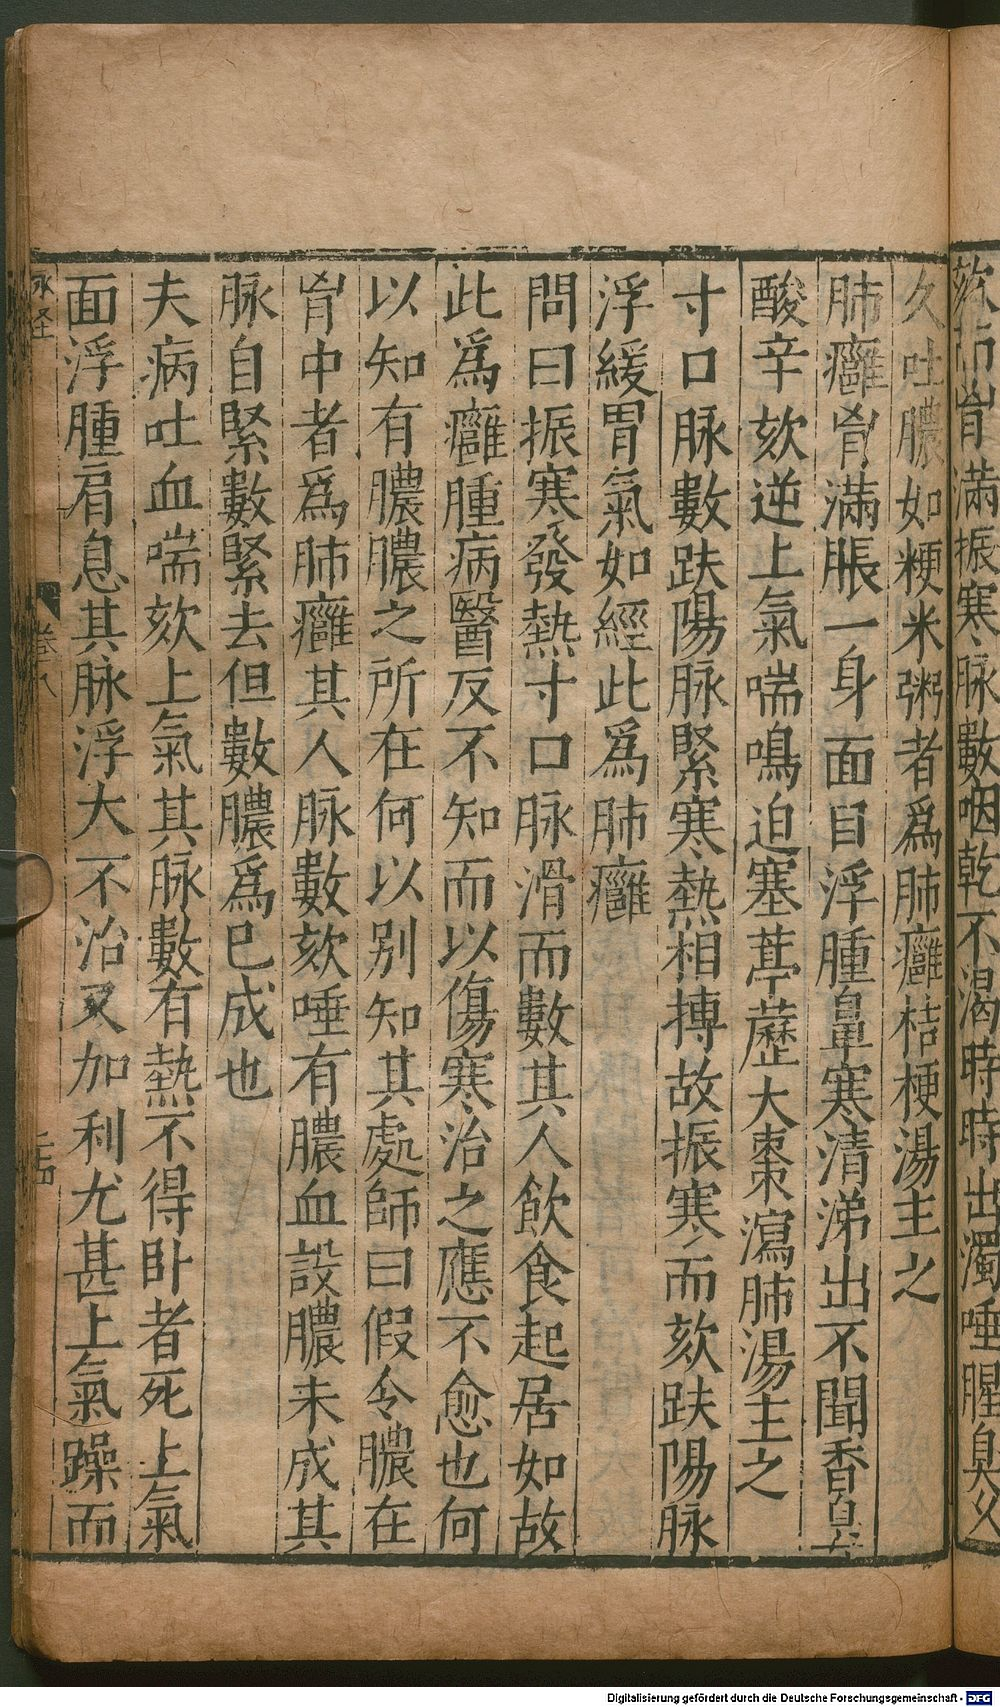 欬而胷滿振寒脉數咽乾不渴時時出濁唾腥臭久
久吐膿如粳米粥者爲肺癰桔梗湯主之
肺癰胷滿脹一身面目浮腫鼻寒清涕出不聞香臭
酸辛欬逆上氣喘鳴迫塞葶藶大棗瀉肺湯主之
寸口脉數趺陽脉緊寒熱相搏故振寒而欬趺陽脉
浮緩胃氣如經此爲肺癰
問曰振寒發熱寸口脉滑而數其人飲食起居如故
此爲癰腫病醫反不知而以傷寒治之應不愈也何
以知有膿膿之所在何以别知其處師曰假令膿在
胷中者爲肺癰其人脉數欬唾有膿血設膿未成其
脉自緊數緊去但數膿爲已成也
夫病吐血喘欬上氣其脉數有熱不得卧者死上氣
面浮腫肩息其脉浮大不治又加利尤甚上氣躁而
脉経
卷八
二十四
Digitalisierung gefördert durch die Deutsche Forschungsgemeinschaft - DFG